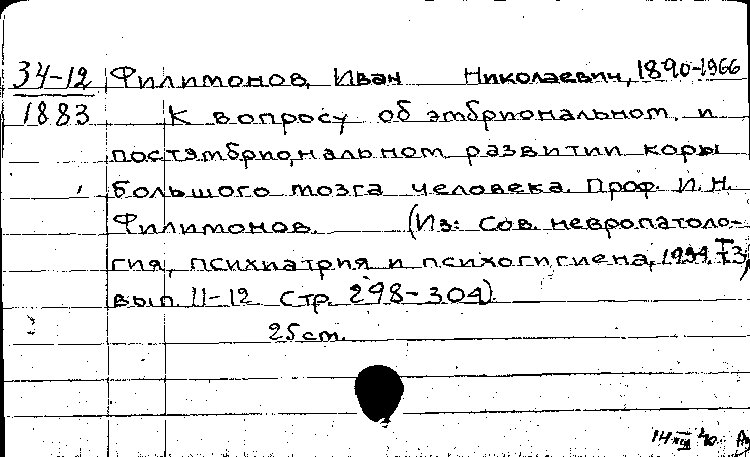 34-12 Филимонов, Иван Николаевич, 1890-1966
1883 К вопросу об эмбриональном и
постэмбриональном развитии коры
большого мозга человека. Проф. И. Н.
Филимонов. (Из: Сов. невропатоло-
гия, психиатрия и психогигиена, 1934, т. 3,
вып. 11-12 стр. 298-304).
25 cm.
14